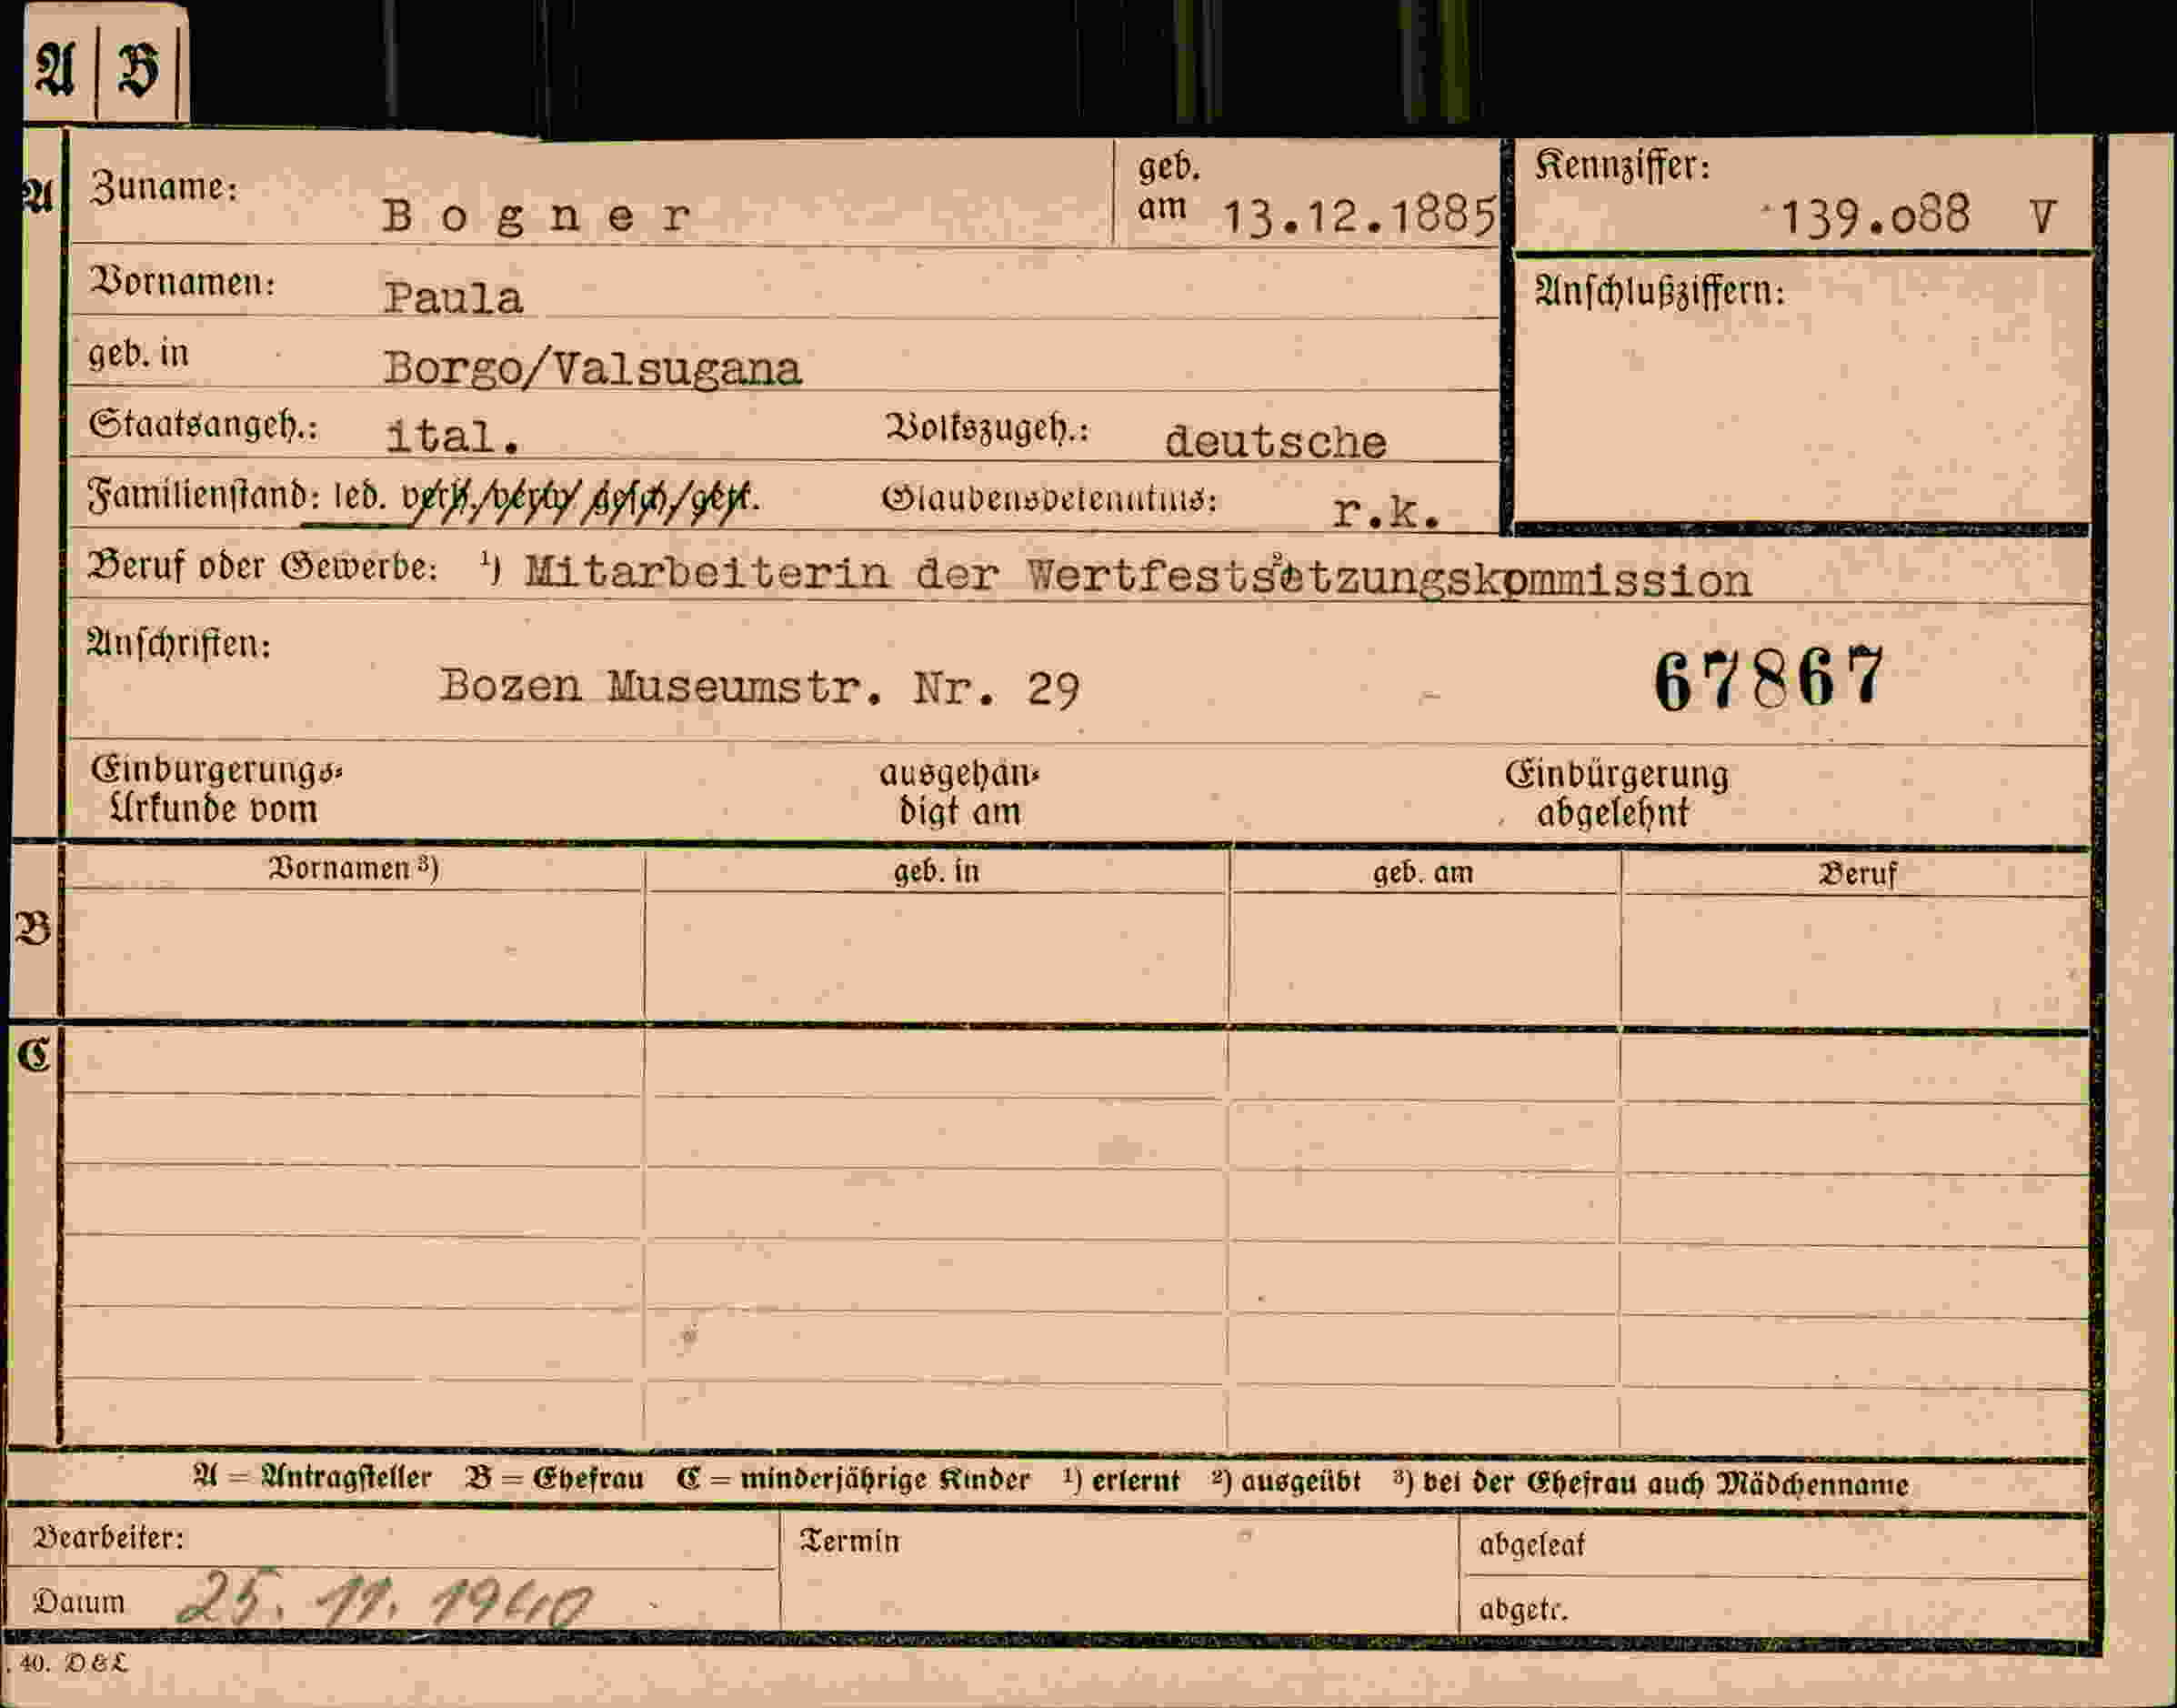 A B
A Zuname: Bogner geb. am 13.12.1885 Kennziffer: 139.o88 V
Vornamen: Paula Anschlußziffern:
geb. in Borgo/Valsugana
Staatsangeh.: ital. Volkszugeh.: deutsche
Familienstand: led. verh./verw./gesch./getr. Glaubensbekenntnis: r.k.
Beruf oder Gewerbe: ¹) Mitarbeiterin der Wertfestsetzungskommission
Anschriften:
Bozen Museumstr. Nr. 29 67867
Einbürgerungs- ausgehän- Einbürgerung
Urkunde vom digt am abgelehnt
Vornamen ³) geb. in geb. am Beruf
B
C
A = Antragsteller B = Ehefrau C = minderjährige Kinder ¹) erlernt ²) ausgeübt ³) bei der Ehefrau auch Mädchenname
Bearbeiter: Termin abgelegt
Datum 25. 11. 1940 abgetr.
. 40. D & L